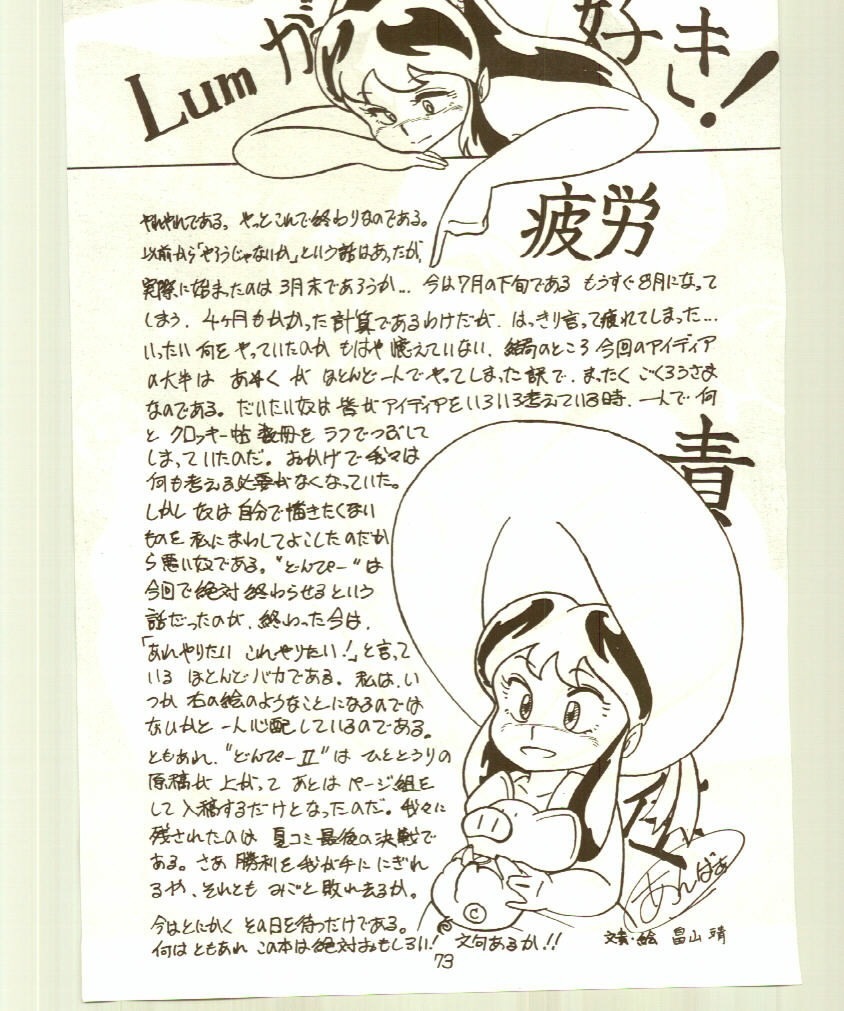 Lumが好き!
疲労
やれやれである。やっとこれで終わりなのである。
以前から「やろうじゃないか」という話はあったが、
実際に始まったのは3月末であろうか… 今は7月の下旬である もうすぐ8月になって
しまう。4ヶ月もかかった計算であるわけだが、はっきり言って疲れてしまった…
いったい何をやっていたのか もはや憶えていない。結局のところ今回のアイディア
の大半は あめく が ほとんど一人でやってしまった訳で、まったく ごくろうさま
なのである。だいたい奴は皆がアイディアをいろいろ考えている時、一人で何
と クロッキー帖 数冊を ラフでつぶして
しまっていたのだ。おかげで我々は
何も考える必要がなくなっていた。
しかし 奴は自分で描きたくない
ものを 私にまわしてよこしたのだか
ら悪い奴である。"どんぴー"は
今回で絶対終わらせるという
話だったのが、終わった今は、
「あれやりたい これやりたい!」と言って
いる ほとんどバカである。私は、い
つか 右の絵のようなことになるのでは
ないかと 一人心配しているのである。
ともあれ、"どんぴーⅡ"は ひととうりの
原稿が 上がって あとは ページ組を
して 入稿するだけとなったのだ。我々に
残されたのは 夏コミ最後の決戦で
ある。さあ 勝利を我が手に にぎれ
るや、それとも みごと敗れ去るか。
今はとにかく その日を待つだけである。
何はともあれ この本は絶対おもしろい! 文句あるか!!
責
任
C
あんばあ
文責・絵 畠山 靖
73